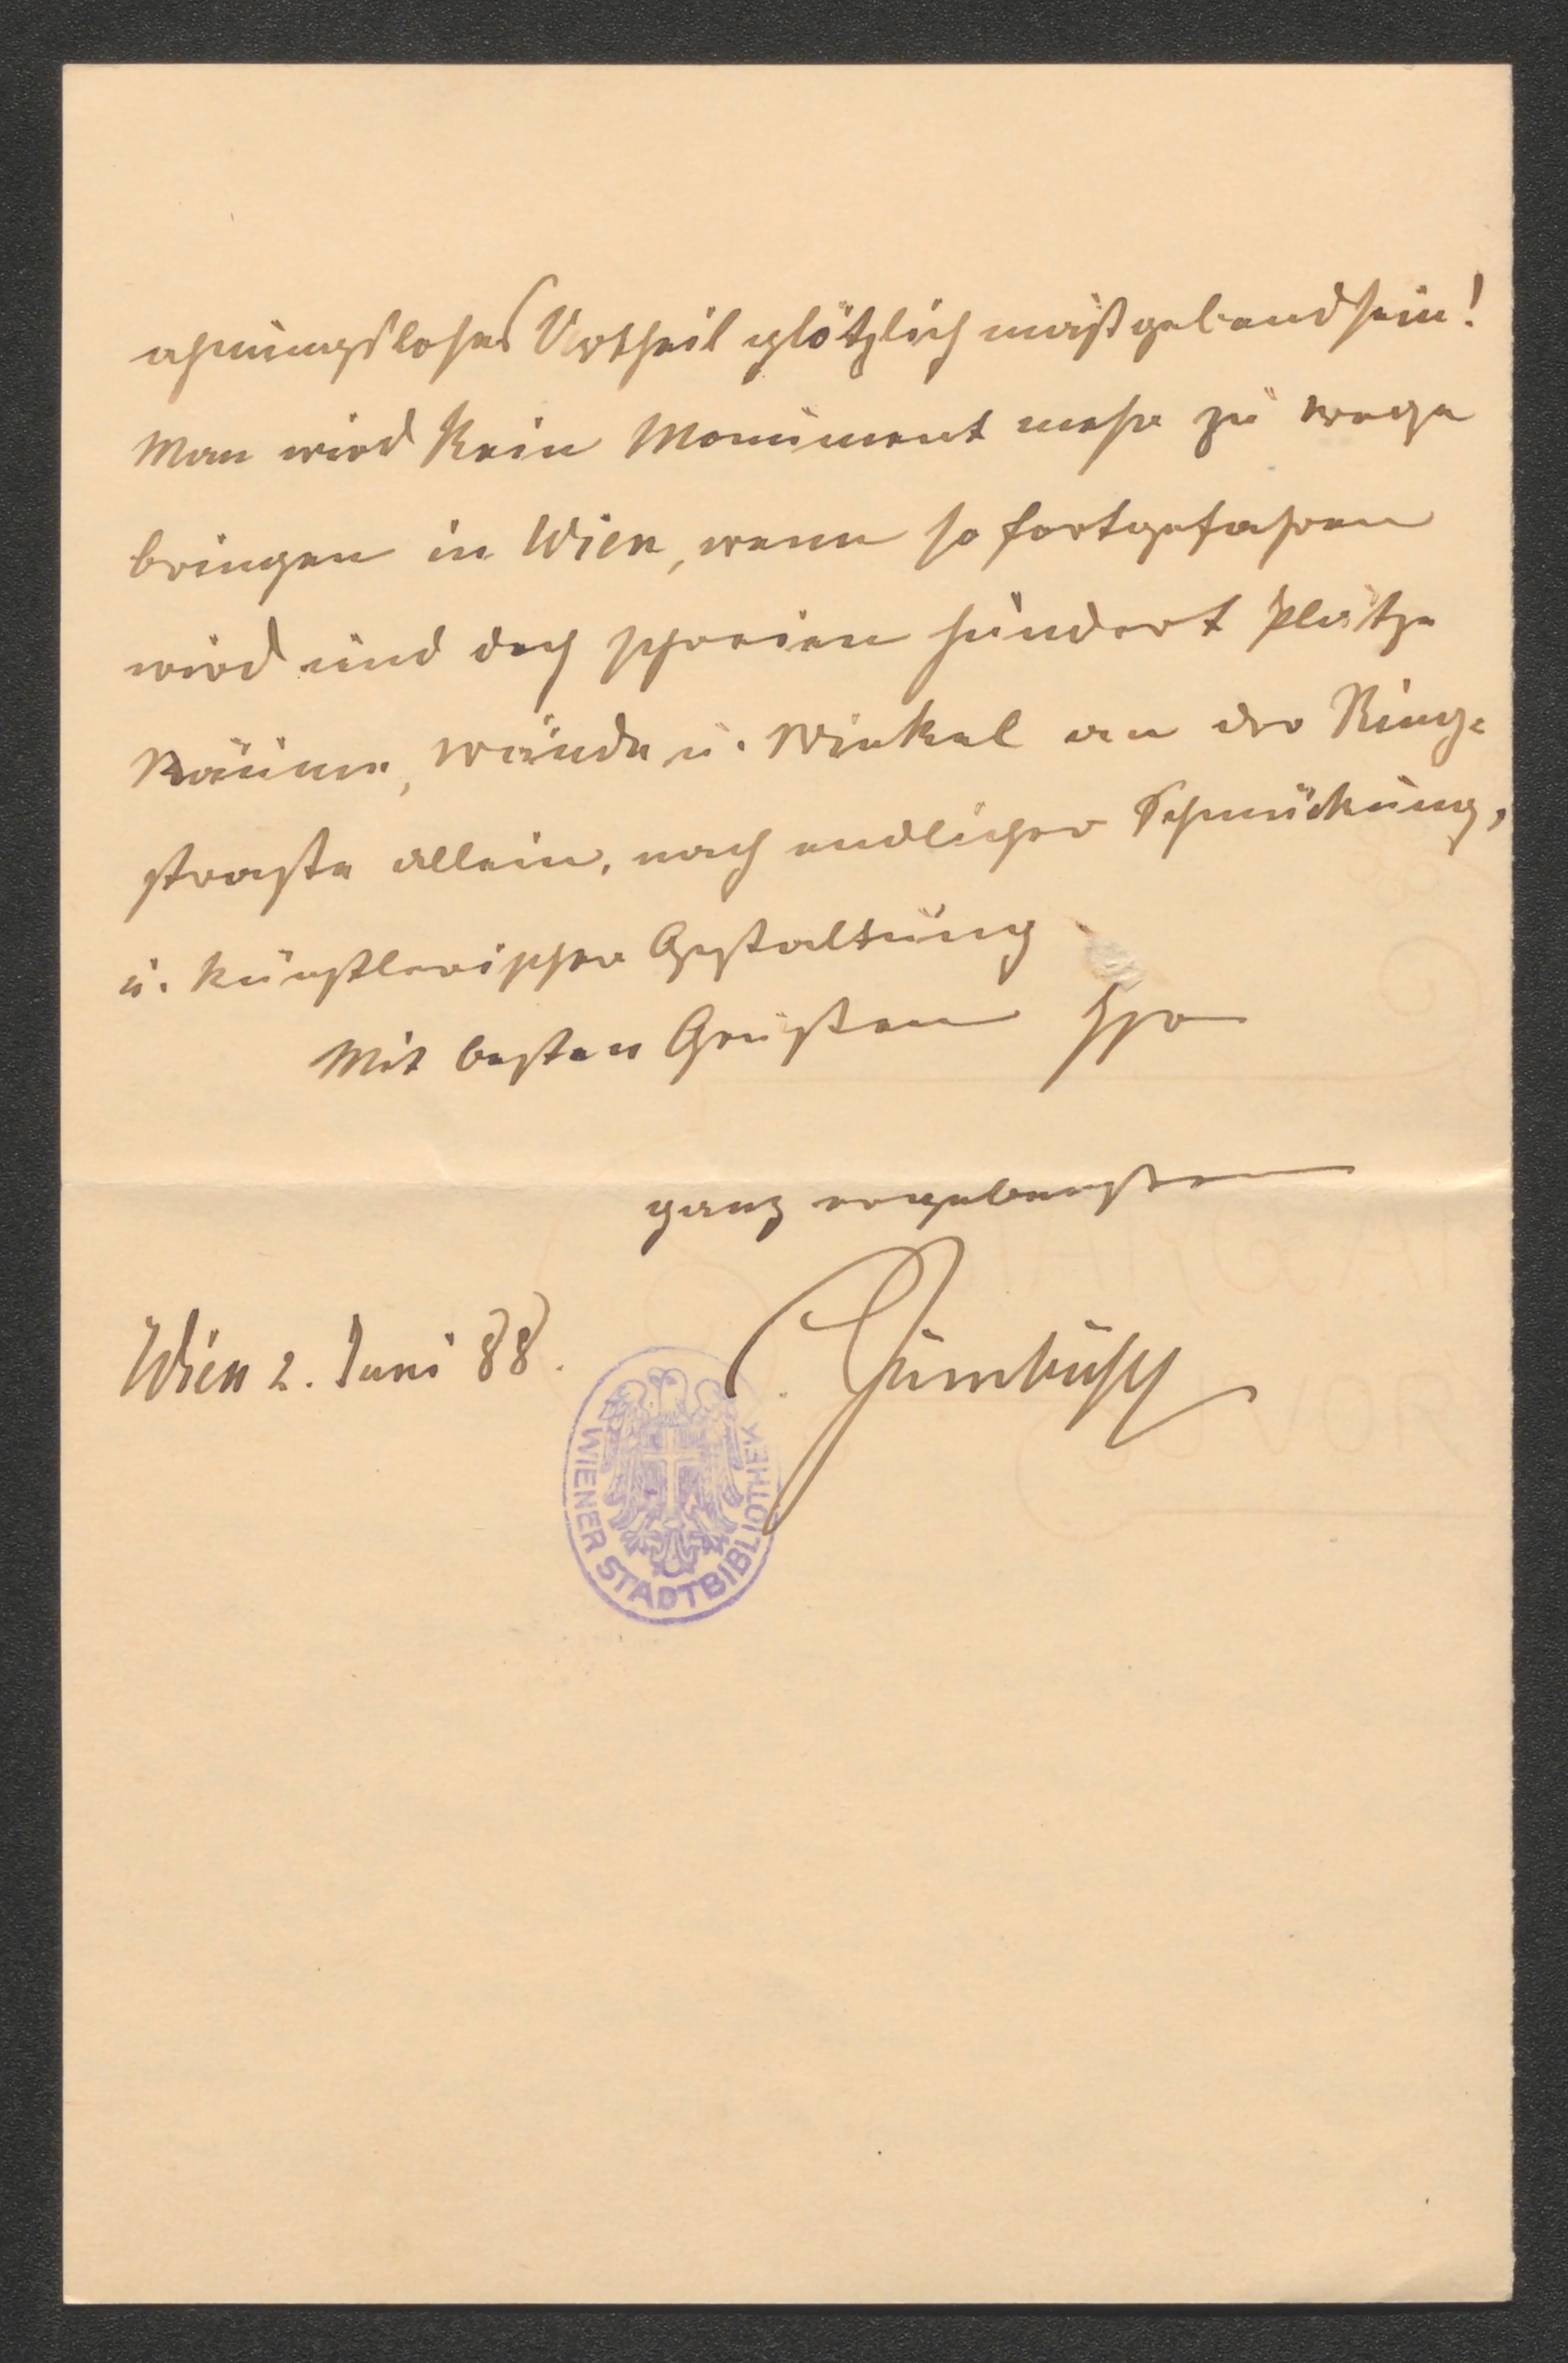 ahnungsloses Urtheil plötzlich maßgebend sein!
Man wird kein Monument mehr zu wege
bringen in Wien, wenn so fortgefahren
wird und doch schreien hundert Plätze
Räume, Wände u. Winkel an der Ring-
straße allein, nach endlicher Schmückung,
u. künstlerischer Gestaltung
Mit besten Grüßen Ihr
ganz ergebenster
Wien 2. Juni 88.
Zumbusch
WIENER STADTBIBLIOTHEK